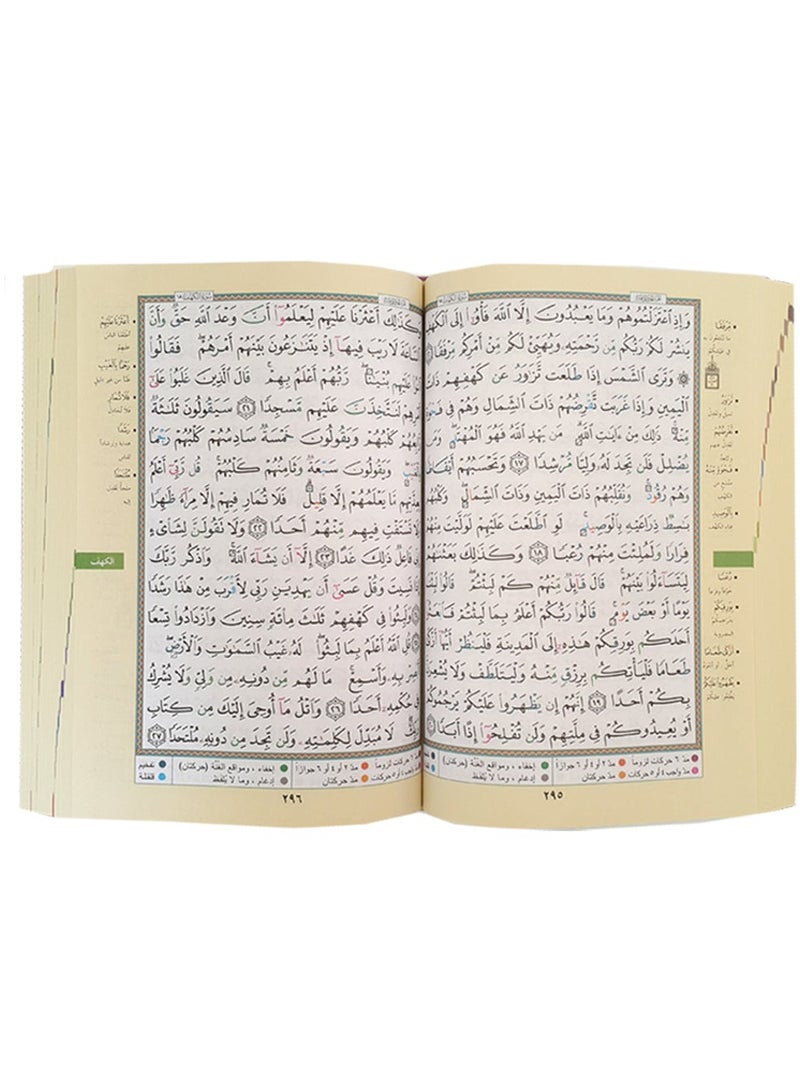 وَإِذِ ٱعْتَزَلْتُمُوهُمْ وَمَا يَعْبُدُونَ إِلَّا ٱللَّهَ فَأْوُۥٓا۟ إِلَى ٱلْكَهْفِ
يَنشُرْ لَكُمْ رَبُّكُم مِّن رَّحْمَتِهِۦ وَيُهَيِّئْ لَكُم مِّنْ أَمْرِكُم مِّرْفَقًا
۞ وَتَرَى ٱلشَّمْسَ إِذَا طَلَعَت تَّزَٰوَرُ عَن كَهْفِهِمْ ذَاتَ
ٱلْيَمِينِ وَإِذَا غَرَبَت تَّقْرِضُهُمْ ذَاتَ ٱلشِّمَالِ وَهُمْ فِى فَجْوَةٍ
مِّنْهُ ۚ ذَٰلِكَ مِنْ ءَايَٰتِ ٱللَّهِ ۗ مَن يَهْدِ ٱللَّهُ فَهُوَ ٱلْمُهْتَدِ ۖ وَمَن
يُضْلِلْ فَلَن تَجِدَ لَهُۥ وَلِيًّا مُّرْشِدًا ١٧ وَتَحْسَبُهُمْ أَيْقَاظًا
وَهُمْ رُقُودٌ ۚ وَنُقَلِّبُهُمْ ذَاتَ ٱلْيَمِينِ وَذَاتَ ٱلشِّمَالِ ۖ وَكَلْبُهُم
بَٰسِطٌ ذِرَاعَيْهِ بِٱلْوَصِيدِ ۚ لَوِ ٱطَّلَعْتَ عَلَيْهِمْ لَوَلَّيْتَ مِنْهُمْ
فِرَارًا وَلَمُلِئْتَ مِنْهُمْ رُعْبًا ١٨ وَكَذَٰلِكَ بَعَثْنَٰهُمْ
لِيَتَسَآءَلُوا۟ بَيْنَهُمْ ۚ قَالَ قَآئِلٌ مِّنْهُمْ كَمْ لَبِثْتُمْ ۖ قَالُوا۟ لَبِثْنَا
يَوْمًا أَوْ بَعْضَ يَوْمٍ ۚ قَالُوا۟ رَبُّكُمْ أَعْلَمُ بِمَا لَبِثْتُمْ فَٱبْعَثُوٓا۟
أَحَدَكُم بِوَرِقِكُمْ هَٰذِهِۦٓ إِلَى ٱلْمَدِينَةِ فَلْيَنظُرْ أَيُّهَآ أَزْكَىٰ
طَعَامًا فَلْيَأْتِكُم بِرِزْقٍ مِّنْهُ وَلْيَتَلَطَّفْ وَلَا يُشْعِرَنَّ
بِكُمْ أَحَدًا ١٩ إِنَّهُمْ إِن يَظْهَرُوا۟ عَلَيْكُمْ يَرْجُمُوكُمْ
أَوْ يُعِيدُوكُمْ فِى مِلَّتِهِمْ وَلَن تُفْلِحُوٓا۟ إِذًا أَبَدًا
مِرْفَقًا
تَزَاوَرُ
تَقْرِضُهُمْ
فَجْوَةٍ مِنْهُ
بِالْوَصِيدِ
رُعْبًا
بِوَرِقِكُمْ
أَزْكَى طَعَامًا
يَظْهَرُوا عَلَيْكُمْ
مدّ ٦ حركات لزوماً مدّ ٢ أو ٤ أو ٦ جوازاً إخفاء، ومواقع الغُنَّة (حركتان)
مدّ واجب ٤ أو ٥ حركات مدّ حركتان إدغام، وما لا يُلفَظ
٢٩٥
سورة الكهف ١٨
كَذَٰلِكَ أَعْثَرْنَا عَلَيْهِمْ لِيَعْلَمُوٓا۟ أَنَّ وَعْدَ ٱللَّهِ حَقٌّ وَأَنَّ
ٱلسَّاعَةَ لَا رَيْبَ فِيهَآ إِذْ يَتَنَٰزَعُونَ بَيْنَهُمْ أَمْرَهُمْ ۖ فَقَالُوا۟
عَلَيْهِم بُنْيَٰنًا ۖ رَّبُّهُمْ أَعْلَمُ بِهِمْ ۚ قَالَ ٱلَّذِينَ غَلَبُوا۟ عَلَىٰٓ
أَمْرِهِمْ لَنَتَّخِذَنَّ عَلَيْهِم مَّسْجِدًا ٢١ سَيَقُولُونَ ثَلَٰثَةٌ
رَّابِعُهُمْ كَلْبُهُمْ وَيَقُولُونَ خَمْسَةٌ سَادِسُهُمْ كَلْبُهُمْ رَجْمًۢا
بِٱلْغَيْبِ ۖ وَيَقُولُونَ سَبْعَةٌ وَثَامِنُهُمْ كَلْبُهُمْ ۚ قُل رَّبِّىٓ أَعْلَمُ
بِعِدَّتِهِم مَّا يَعْلَمُهُمْ إِلَّا قَلِيلٌ ۗ فَلَا تُمَارِ فِيهِمْ إِلَّا مِرَآءً ظَٰهِرًا
وَلَا تَسْتَفْتِ فِيهِم مِّنْهُمْ أَحَدًا ٢٢ وَلَا تَقُولَنَّ لِشَا۟ىْءٍ
إِنِّى فَاعِلٌ ذَٰلِكَ غَدًا ٢٣ إِلَّآ أَن يَشَآءَ ٱللَّهُ ۚ وَٱذْكُر رَّبَّكَ
إِذَا نَسِيتَ وَقُلْ عَسَىٰٓ أَن يَهْدِيَنِ رَبِّى لِأَقْرَبَ مِنْ هَٰذَا رَشَدًا
وَلَبِثُوا۟ فِى كَهْفِهِمْ ثَلَٰثَ مِا۟ئَةٍ سِنِينَ وَٱزْدَادُوا۟ تِسْعًا
قُلِ ٱللَّهُ أَعْلَمُ بِمَا لَبِثُوا۟ ۖ لَهُۥ غَيْبُ ٱلسَّمَٰوَٰتِ وَٱلْأَرْضِ ۖ
أَبْصِرْ بِهِۦ وَأَسْمِعْ ۚ مَا لَهُم مِّن دُونِهِۦ مِن وَلِىٍّ وَلَا يُشْرِكُ
فِى حُكْمِهِۦٓ أَحَدًا ٢٦ وَٱتْلُ مَآ أُوحِىَ إِلَيْكَ مِن كِتَابِ
رَبِّكَ ۖ لَا مُبَدِّلَ لِكَلِمَٰتِهِۦ وَلَن تَجِدَ مِن دُونِهِۦ مُلْتَحَدًا ٢٧
أَعْثَرْنَا عَلَيْهِمْ
رَجْمًا بِالْغَيْبِ
فَلَا تُمَارِ
رَشَدًا
مُلْتَحَدًا
الكهف
مدّ ٢ أو ٤ أو ٦ جوازاً إخفاء، ومواقع الغُنَّة (حركتان) تفخيم
مدّ حركتان إدغام، وما لا يُلفَظ قلقلة
٢٩٦